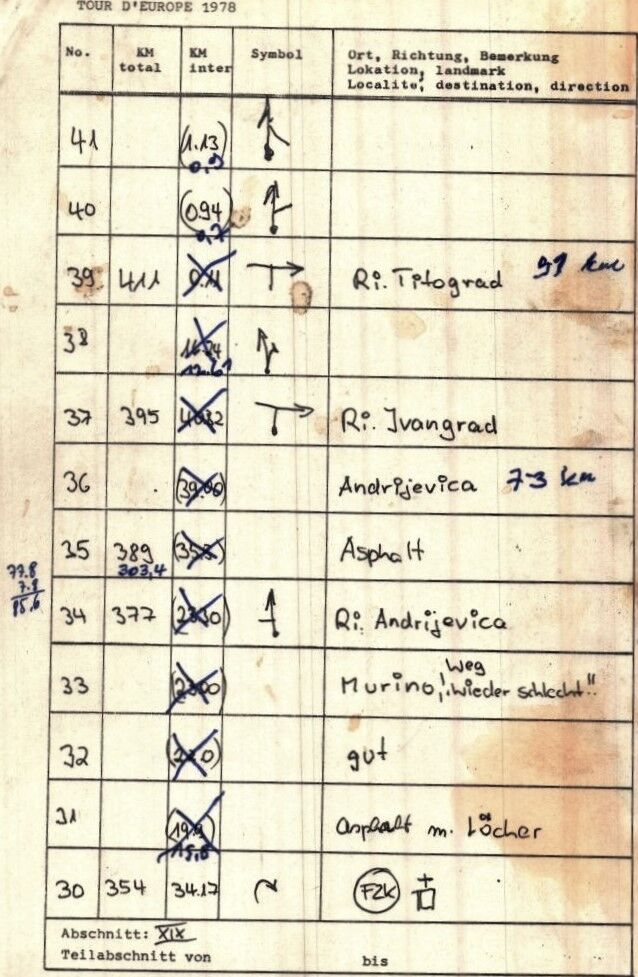 TOUR D'EUROPE 1978
No. KM total KM inter Symbol Ort, Richtung, Bemerkung
Lokation, landmark
Localite, destination, direction
41 (1.13)
0,9
40 (0.94)
0,7
39 411 0.11 Ri. Titograd 91 km
38
37 395 Ri. Ivangrad
36 (39.00) Andrijevica 73 km
35 389 Asphalt
303,4
77.8
7.8
85,6
34 377 (23.50) Ri. Andrijevica
33 (23.00) Murino, "Weg wieder schlecht!!"
32 gut
31 (19.9) asphalt m. Löcher
15,8
30 354 34.17 FZK
Abschnitt: XIX
Teilabschnitt von bis